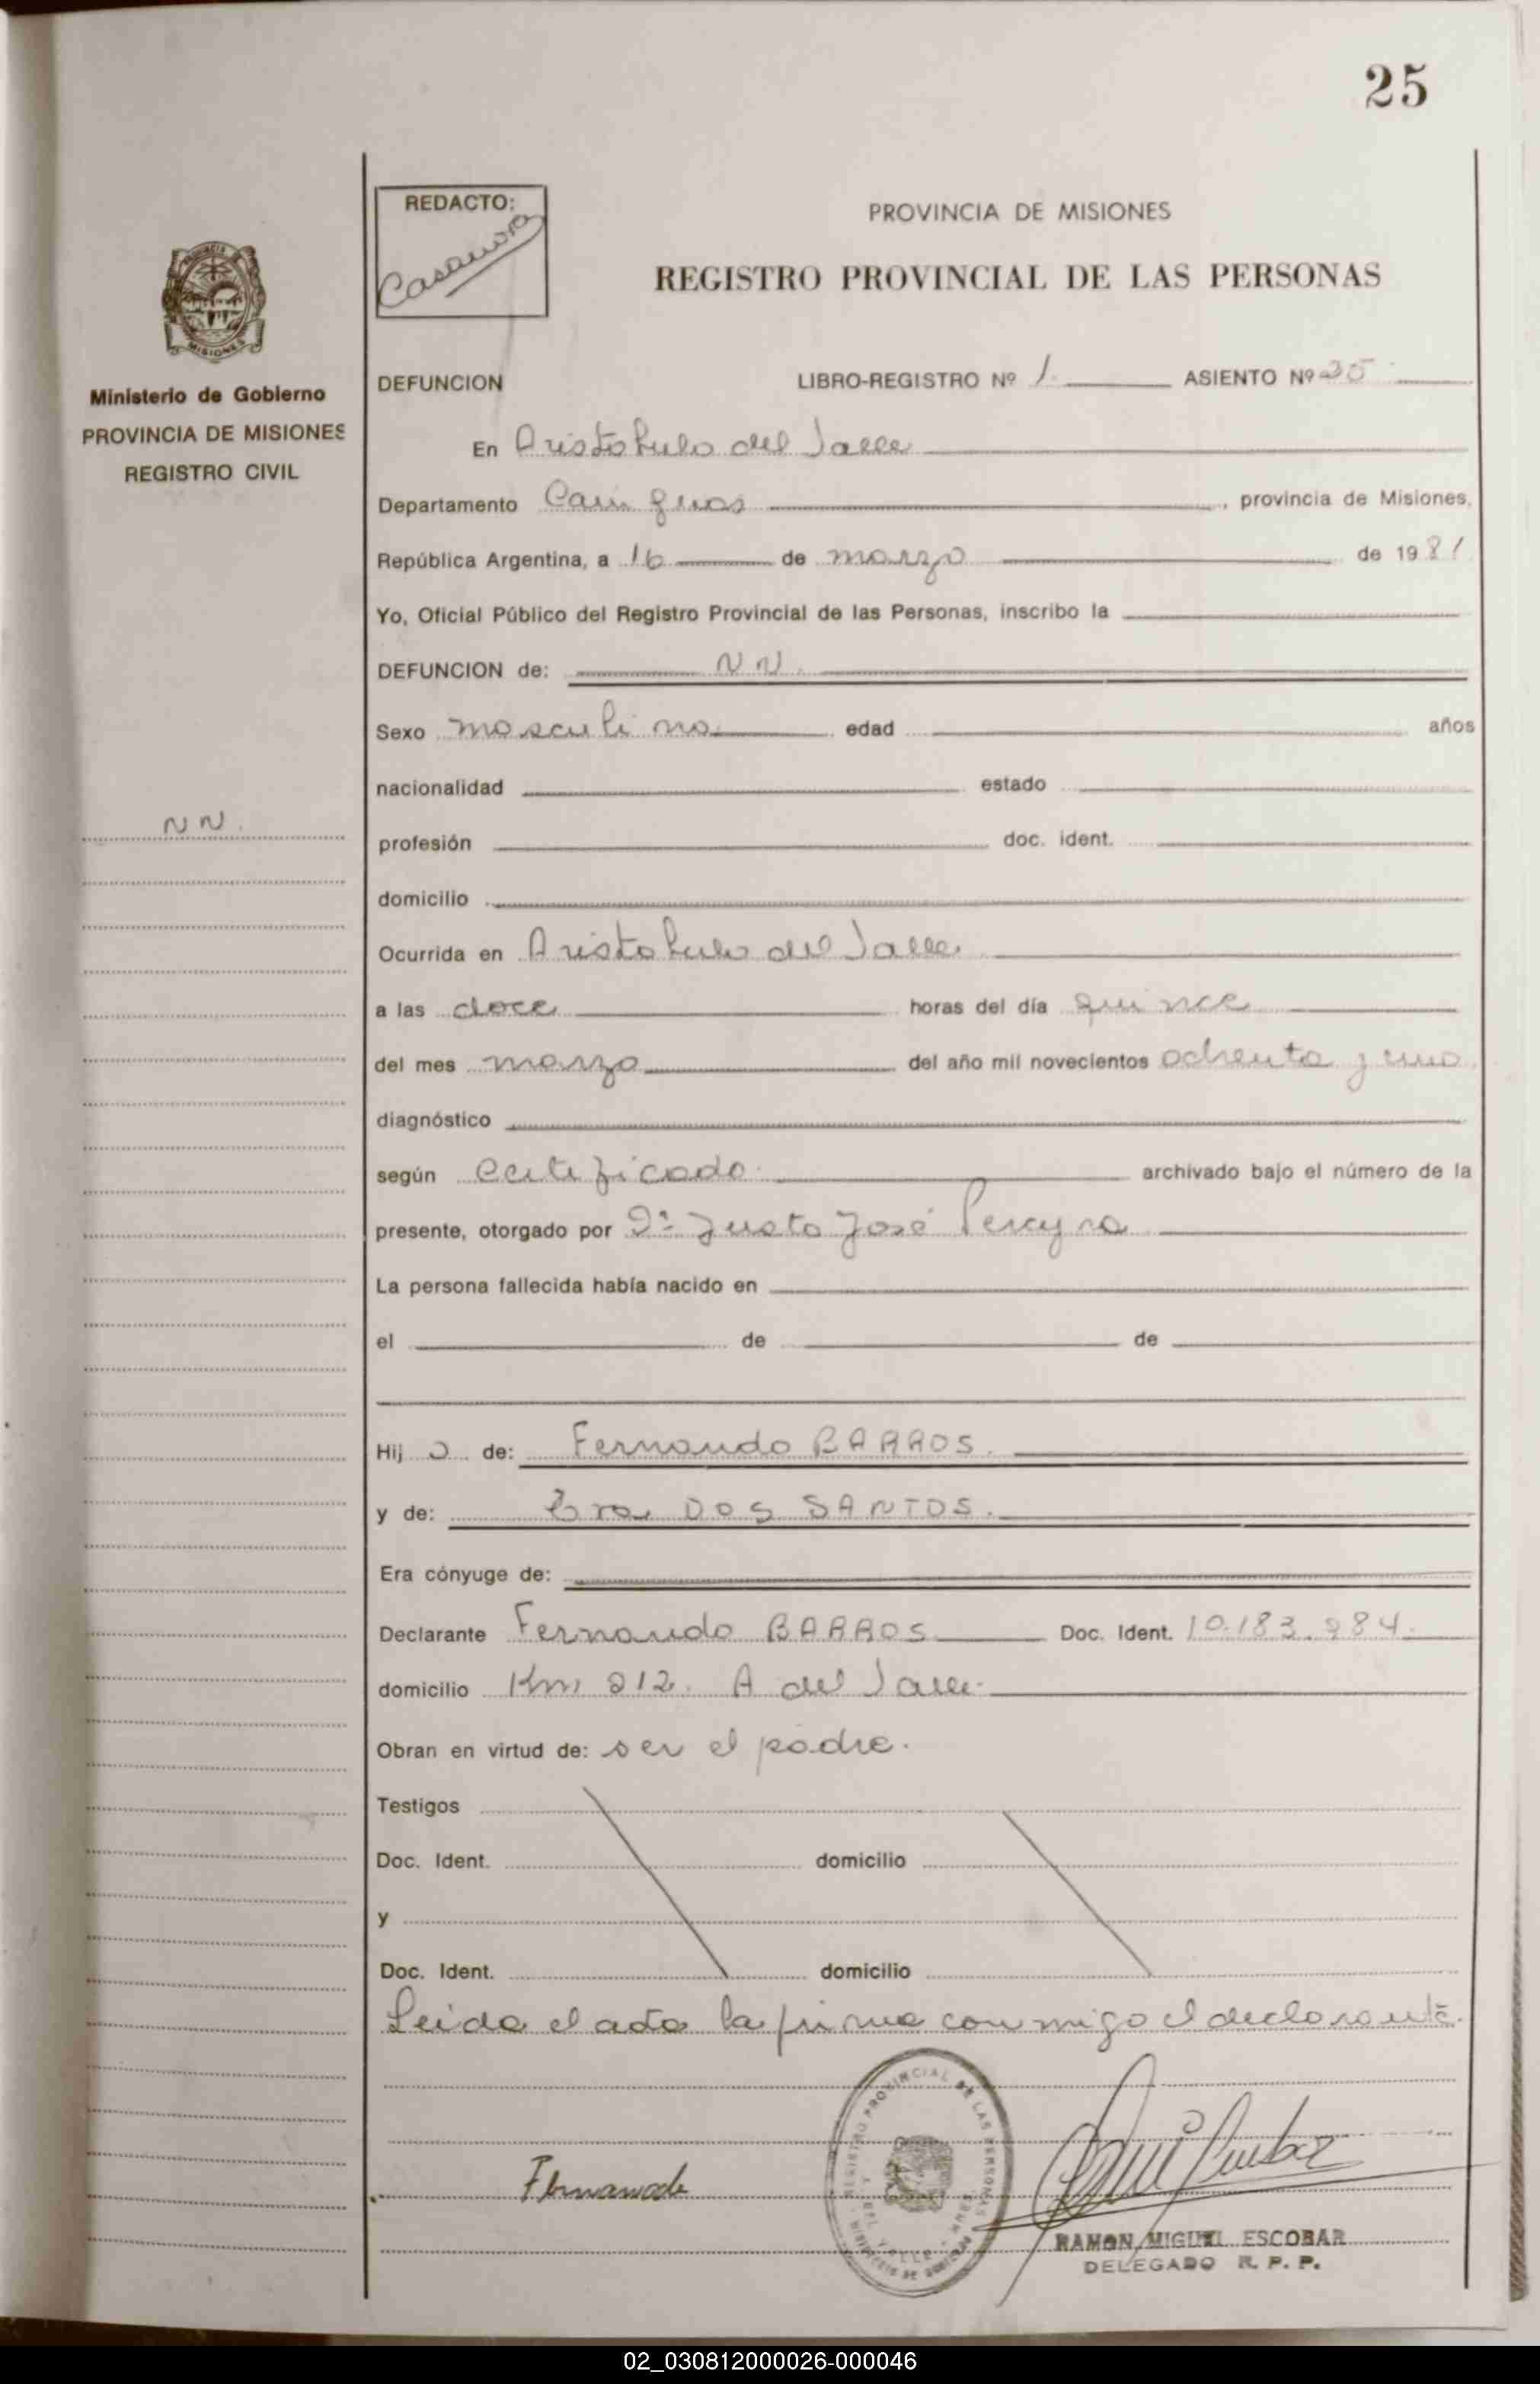 25
REDACTO:
Casanova
PROVINCIA DE MISIONES
REGISTRO PROVINCIAL DE LAS PERSONAS
PROVINCIA
MISIONES
Ministerio de Gobierno
PROVINCIA DE MISIONES
REGISTRO CIVIL
DEFUNCION LIBRO-REGISTRO Nº 1 ASIENTO Nº 25
En Aristobulo del Valle
Departamento Cainguas, provincia de Misiones,
República Argentina, a 16 de marzo de 1981
Yo, Oficial Público del Registro Provincial de las Personas, inscribo la
DEFUNCION de: NN.
Sexo masculino edad años
nacionalidad estado
NN.
profesión doc. ident.
domicilio
Ocurrida en Aristobulo del Valle
a las doce horas del día quince
del mes marzo del año mil novecientos ochenta y uno
diagnóstico
según Certificado archivado bajo el número de la
presente, otorgado por Dr Justo José Pereyra
La persona fallecida había nacido en
el de de
Hijo de: Fernando BARROS.
y de: DOS SANTOS.
Era cónyuge de:
Declarante Fernando BARROS Doc. Ident. 10.183.984.
domicilio Km 212. A del Valle
Obran en virtud de: ser el padre.
Testigos
Doc. Ident. domicilio
y
Doc. Ident. domicilio
Leida el acta la firma conmigo el declarante.
REGISTRO PROVINCIAL DE LAS PERSONAS
DEL VALLE
MINISTERIO DE GOBIERNO
RAMON MIGUEL ESCOBAR
DELEGADO R. P. P.
02_030812000026-000046